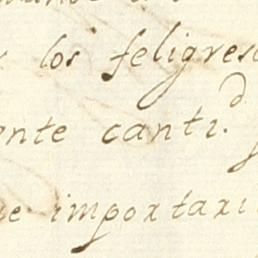 los feligres
ente canti.d
ue importari